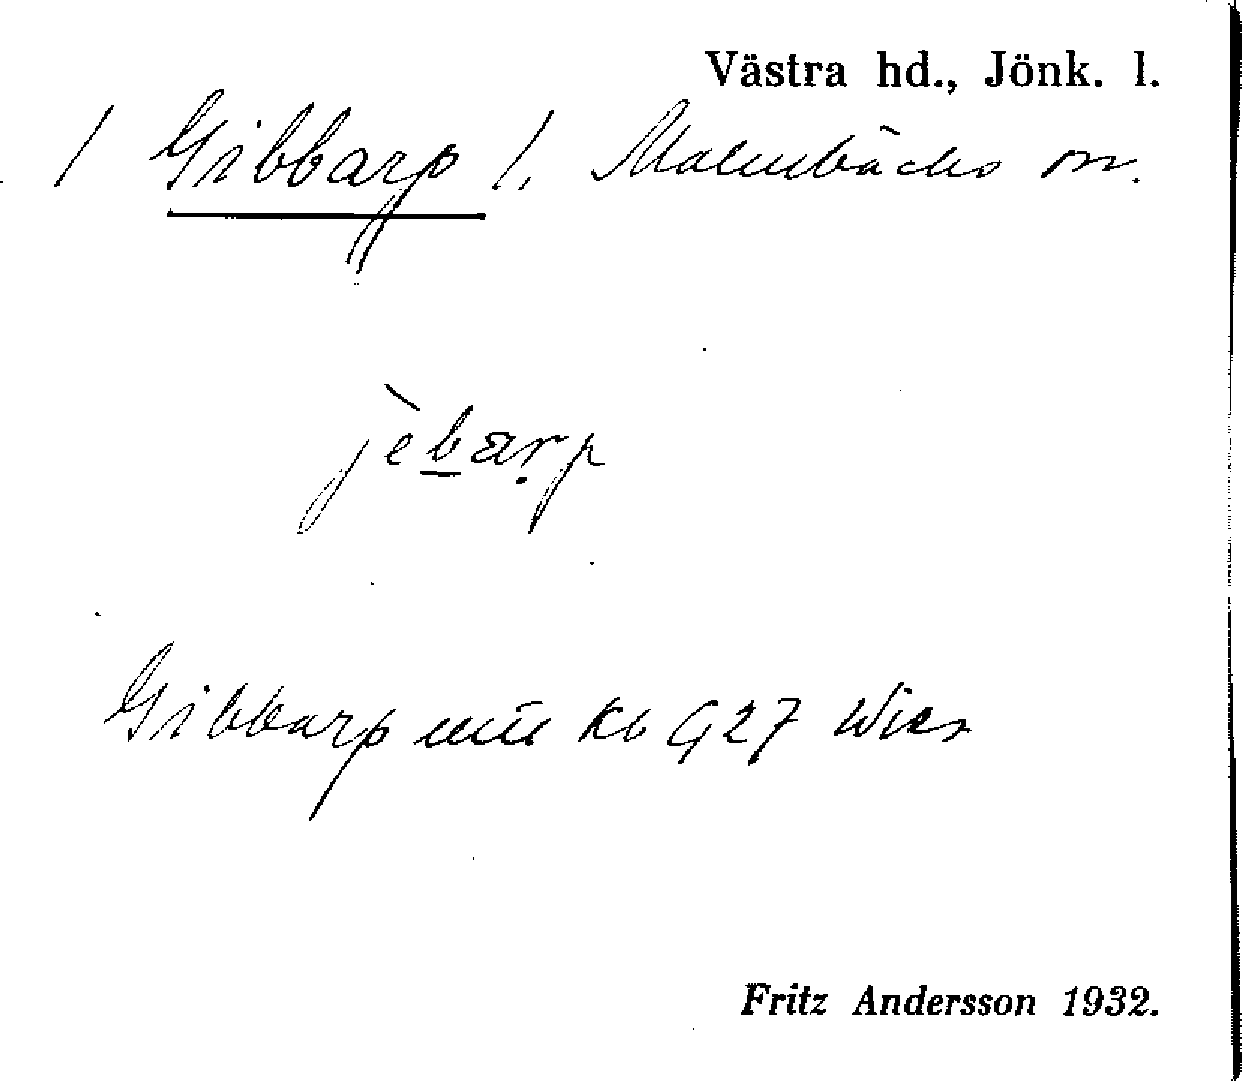 Västra hd., Jönk. l.
/ Gibbarp /, Malmbäcks sn.
jèbarp
Gibbarp Kb G27
Fritz Andersson 1932.